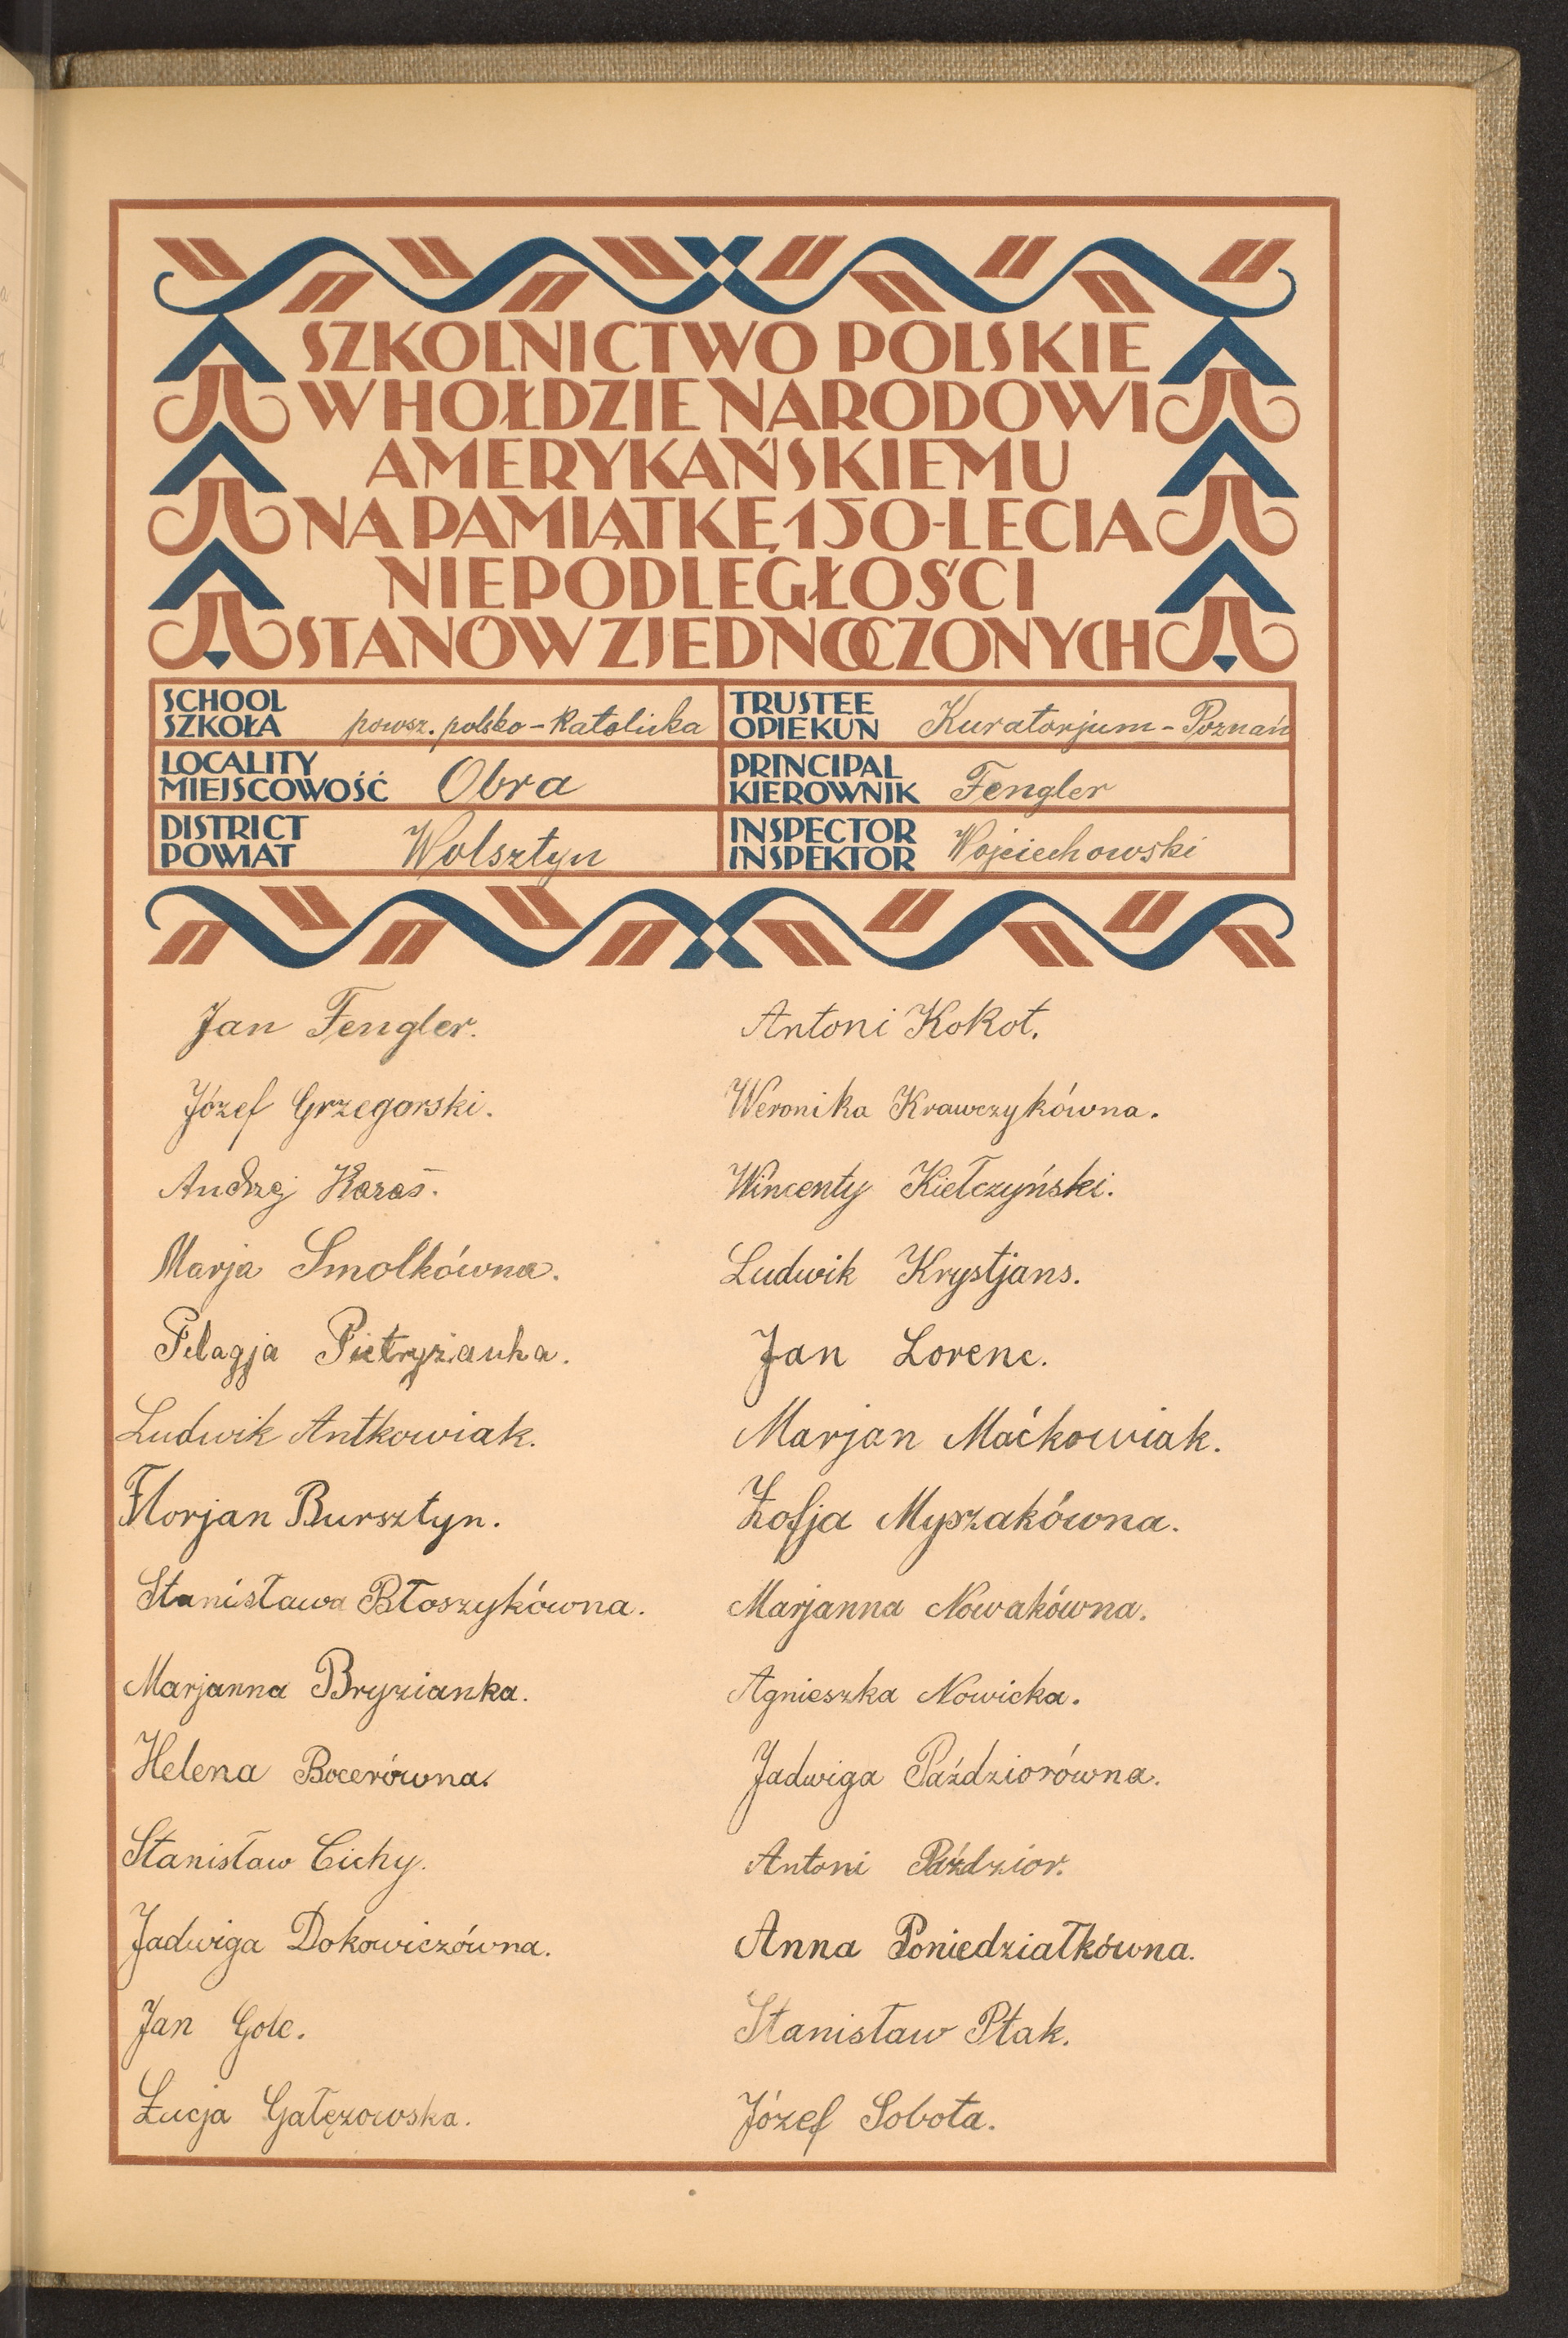 SZKOLNICTWO POLSKIE
W HOŁDZIE NARODOWI
AMERYKAŃSKIEMU
NA PAMIĄTKĘ 150-LECIA
NIEPODLEGŁOŚCI
STANÓW ZJEDNOCZONYCH
SCHOOL
SZKOŁA powsz. polsko-katolicka
TRUSTEE
OPIEKUN Kuratorjum - Poznań
LOCALITY
MIEJSCOWOŚĆ Obra
PRINCIPAL
KIEROWNIK Fengler
DISTRICT
POWIAT Wolsztyn
INSPECTOR
INSPEKTOR Wojciechowski
Jan Fengler.
Józef Grzegorski.
Andrzej Karaś.
Marja Smolkówna.
Pelagja Pietryzianka.
Ludwik Antkowiak.
Florjan Bursztyn.
Stanisława Błoszykówna.
Marjanna Bryzianka.
Helena Bocerówna.
Stanisław Cichy.
Jadwiga Dokowiczówna.
Jan Golc.
Łucja Gałęzowska.
Antoni Kokot.
Weronika Krawczykówna.
Wincenty Kiełczyński.
Ludwik Krystjans.
Jan Lorenc.
Marjan Maćkowiak.
Zofja Myszakówna.
Marjanna Nowakówna.
Agnieszka Nowicka.
Jadwiga Paździorówna.
Antoni Paździor.
Anna Poniedziałkówna.
Stanisław Ptak.
Józef Sobota.